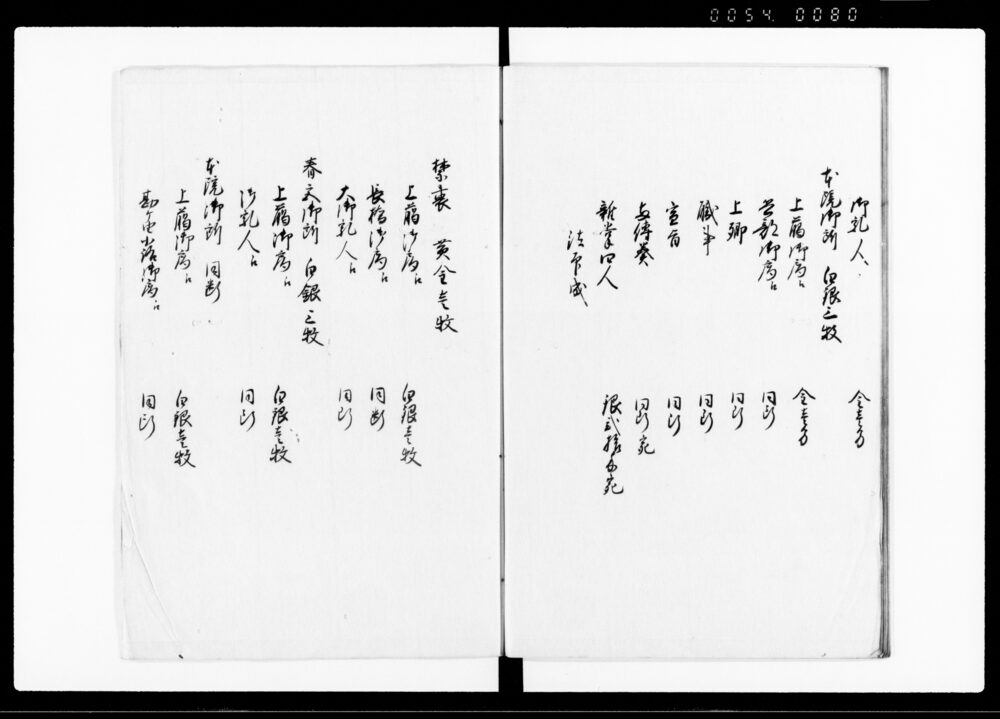 0054 0080
御乳人へ 金壱分
本院御所 白銀三枚
上臈御局へ 金壱分
御局へ 同断
上卿 同断
職事 同断
宣旨 同断
同断宛
雑掌四人 銀弐拾匁宛
法印成
禁裏 黄金壱枚
上臈御局へ 白銀壱枚
長橋御局へ 同断
大御乳人へ 同断
春宮御所 白銀三枚
上臈御局へ 白銀壱枚
御乳人へ 同断
本院御所 同断
上臈御局へ 白銀壱枚
御局へ 同断